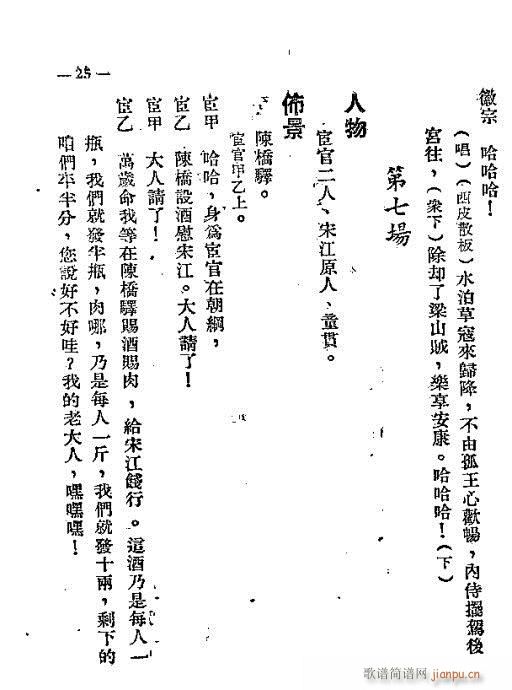 徽宗　哈哈哈！
（唱）（西皮散板）水泊草寇來歸降，不由孤王心歡暢，內侍擺駕後
宮往，（衆下）除却了梁山賊，樂享安康。哈哈哈！（下）
第七場
人物
宦官二人、宋江原人、童貫。
佈景
陳橋驛。
宦官甲乙上。
宦甲　哈哈，身爲宦官在朝綱，
宦乙　陳橋設酒慰宋江。大人請了！
宦甲　大人請了！
宦乙　萬歲命我等在陳橋驛賜酒賜肉，給宋江餞行。這酒乃是每人一
瓶，我們就發半瓶，肉哪，乃是每人一斤，我們就發十兩，剩下的
咱們平半分，您說好不好哇？我的老大人，嘿嘿嘿！
—25—
歌谱简谱网
jianpu.cn